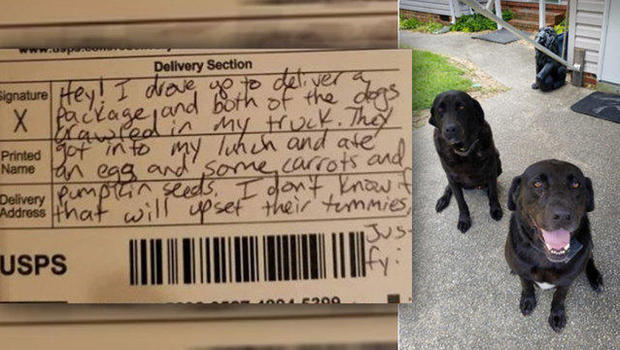 Delivery Section
Signature
X
Hey! I drove up to deliver a
package, and both of the dogs
crawled in my truck. They
Printed
Name
got into my lunch and ate
an egg and some carrots and
Delivery
Address
pumpkin seeds. I don't know if
that will upset their tummies,
Jus-
fy:
USPS